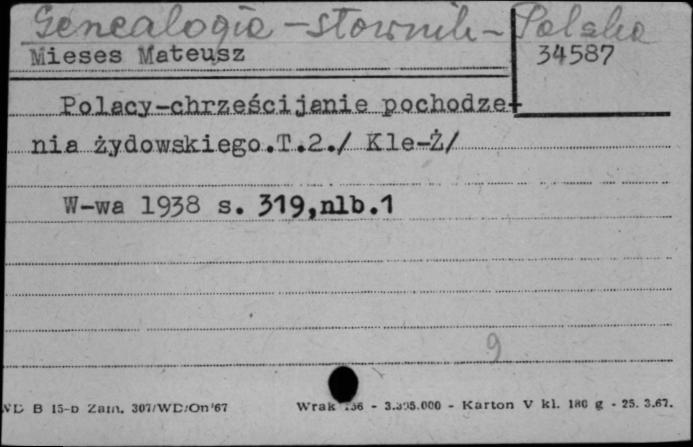 Genealogia - słownik - Polska
Mieses Mateusz
34587
Polacy-chrześcijanie pochodze-
nia żydowskiego.T.2./ Kle-Ż/
W-wa 1938 s. 319,nlb.1
9
B 15-b Zam. 307/WD/On/67
Wrak - 3.395.000 - Karton V kl. 180 g - 25. 3.67.